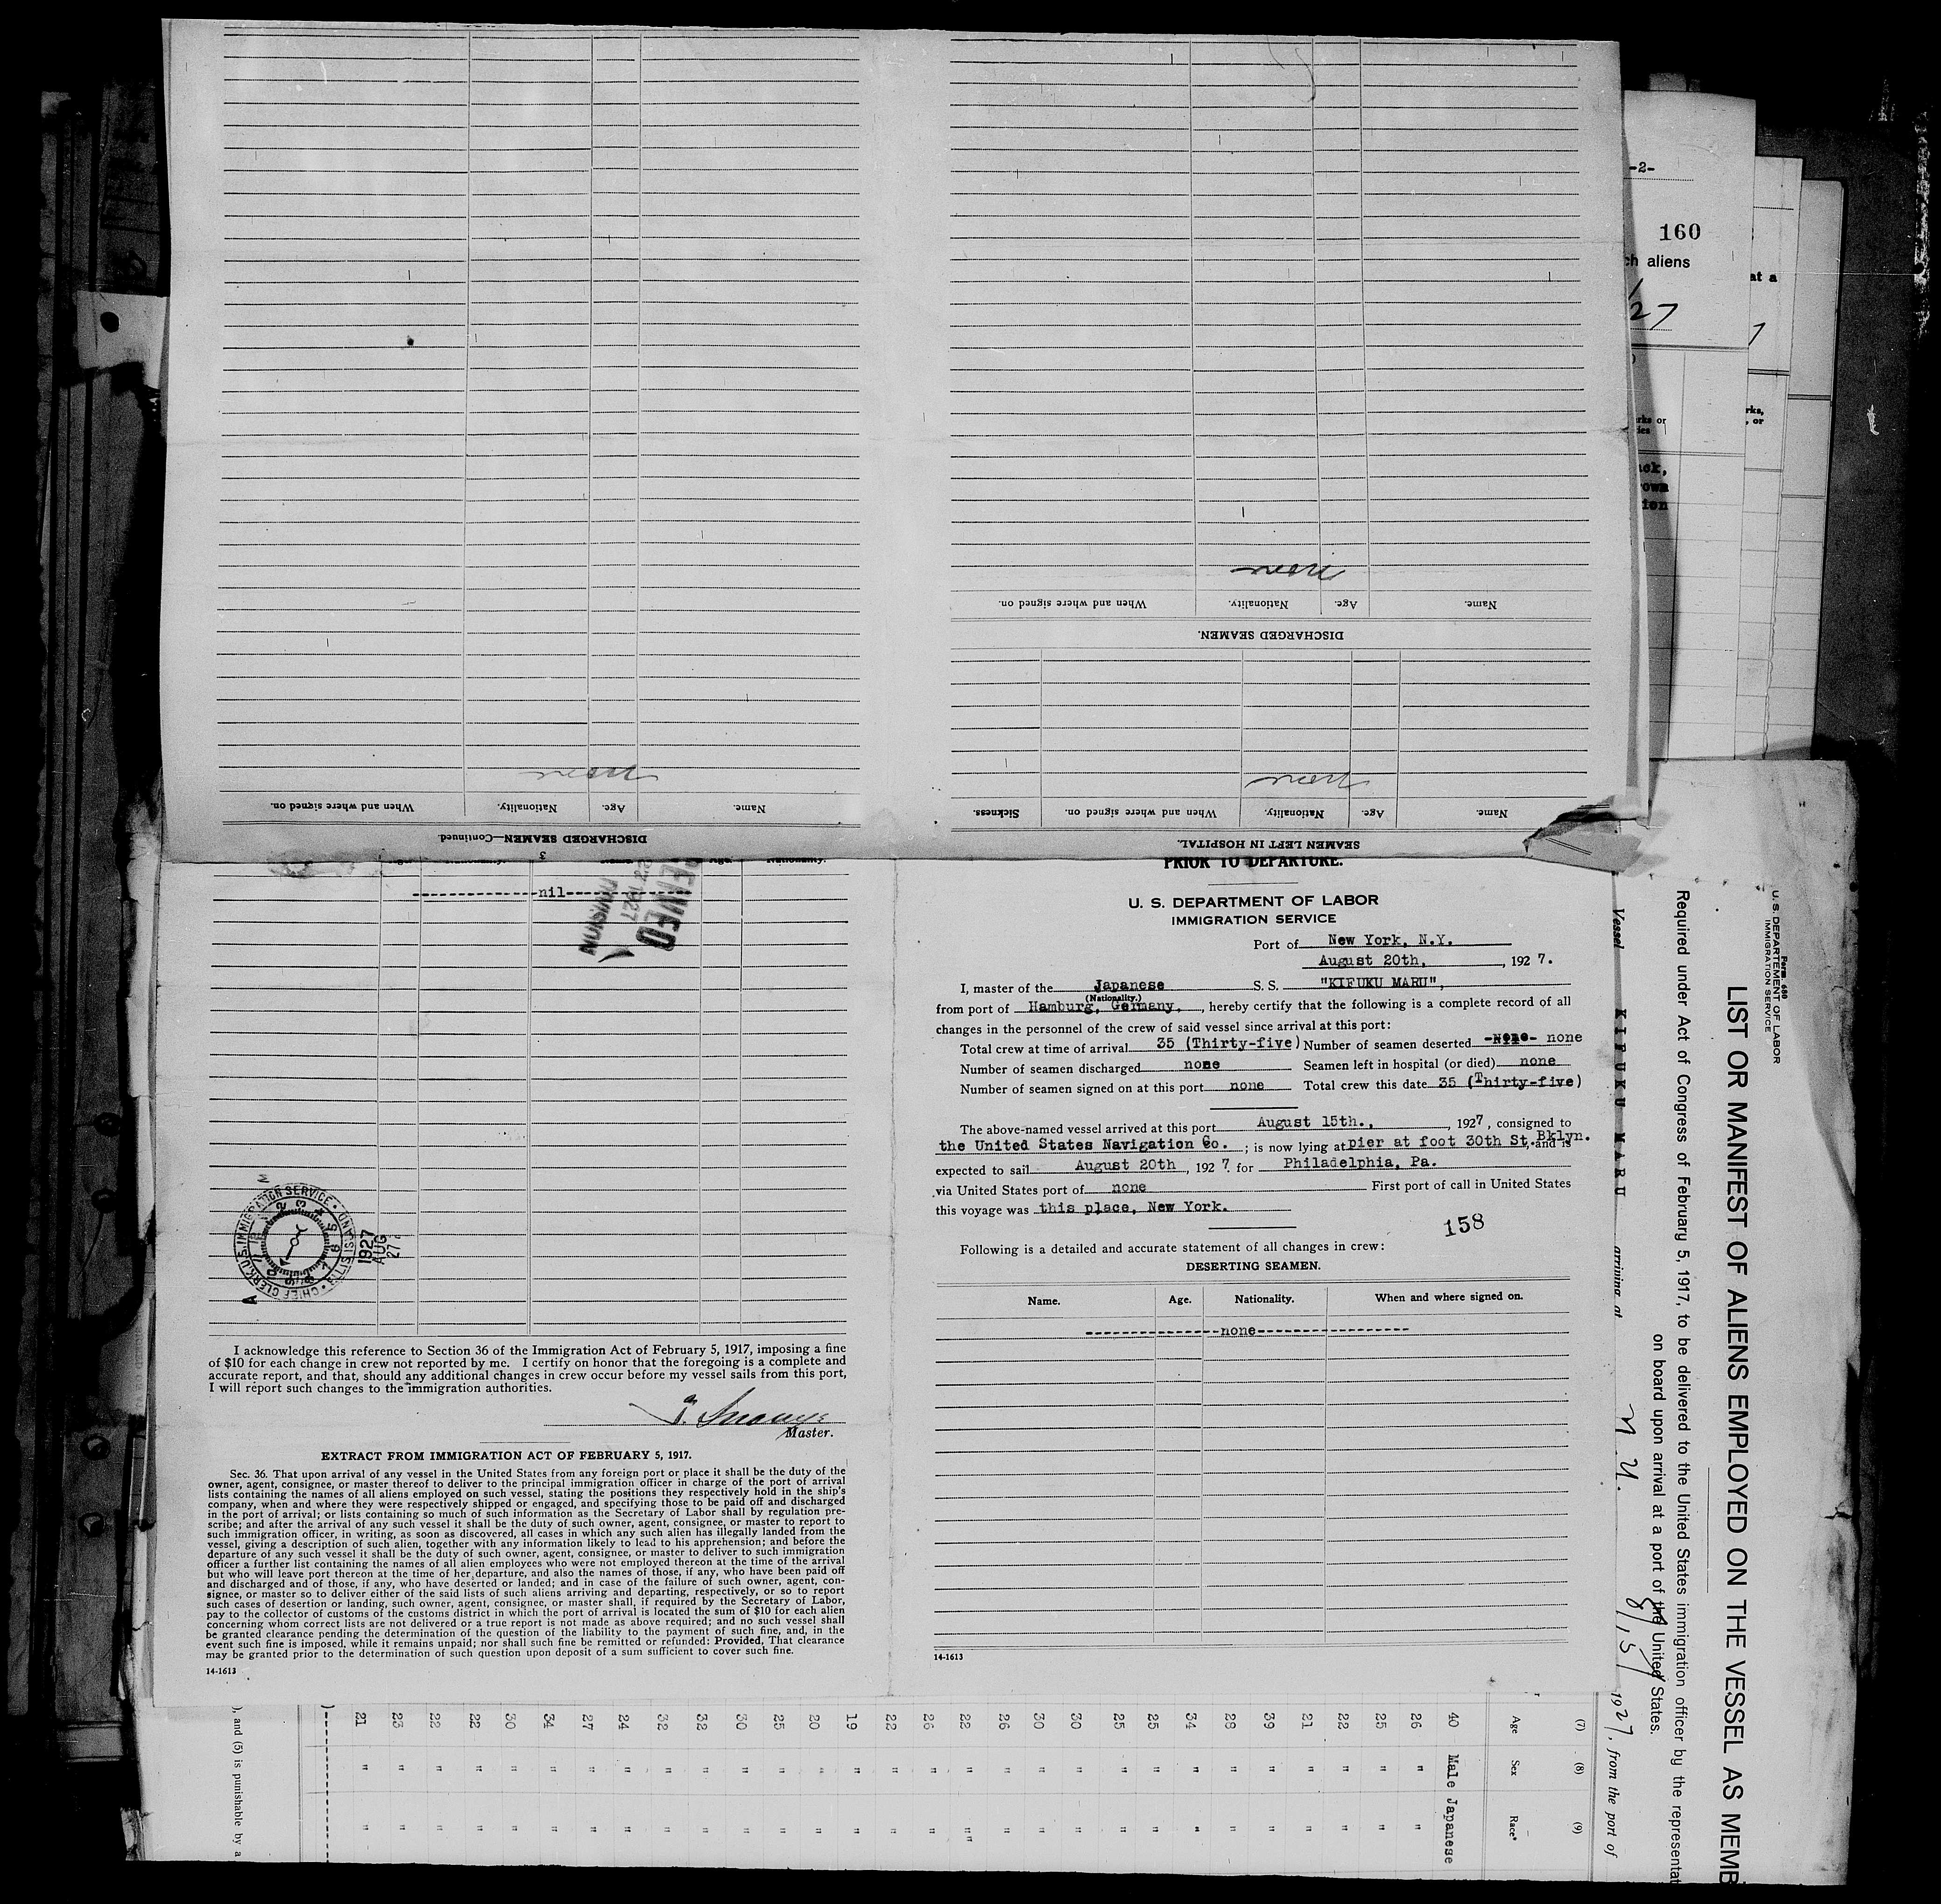 SEAMEN LEFT IN HOSPITAL.
Name. Age. Nationality. When and where signed on. Sickness.
none
DISCHARGED SEAMEN.
Name. Age. Nationality. When and where signed on.
none
DISCHARGED SEAMEN—Continued.
Name. Age. Nationality. When and where signed on.
none
3
nil
DIVISION
CHIEF CLERK U.S. IMMIGRATION SERVICE
1927
AUG
27
I acknowledge this reference to Section 36 of the Immigration Act of February 5, 1917, imposing a fine
of $10 for each change in crew not reported by me. I certify on honor that the foregoing is a complete and
accurate report, and that, should any additional changes in crew occur before my vessel sails from this port,
I will report such changes to the immigration authorities.
Master.
EXTRACT FROM IMMIGRATION ACT OF FEBRUARY 5, 1917.
Sec. 36. That upon arrival of any vessel in the United States from any foreign port or place it shall be the duty of the
owner, agent, consignee, or master thereof to deliver to the principal immigration officer in charge of the port of arrival
lists containing the names of all aliens employed on such vessel, stating the positions they respectively hold in the ship's
company, when and where they were respectively shipped or engaged, and specifying those to be paid off and discharged
in the port of arrival; or lists containing so much of such information as the Secretary of Labor shall by regulation pre-
scribe; and after the arrival of any such vessel it shall be the duty of such owner, agent, consignee, or master to report to
such immigration officer, in writing, as soon as discovered, all cases in which any such alien has illegally landed from the
vessel, giving a description of such alien, together with any information likely to lead to his apprehension; and before the
departure of any such vessel it shall be the duty of such owner, agent, consignee, or master to deliver to such immigration
officer a further list containing the names of all alien employees who were not employed thereon at the time of the arrival
but who will leave port thereon at the time of her departure, and also the names of those, if any, who have been paid off
and discharged and of those, if any, who have deserted or landed; and in case of the failure of such owner, agent, con-
signee, or master so to deliver either of the said lists of such aliens arriving and departing, respectively, or so to report
such cases of desertion or landing, such owner, agent, consignee, or master shall, if required by the Secretary of Labor,
pay to the collector of customs of the customs district in which the port of arrival is located the sum of $10 for each alien
concerning whom correct lists are not delivered or a true report is not made as above required; and no such vessel shall
be granted clearance pending the determination of the question of the liability to the payment of such fine, and, in the
event such fine is imposed, while it remains unpaid; nor shall such fine be remitted or refunded: Provided, That clearance
may be granted prior to the determination of such question upon deposit of a sum sufficient to cover such fine.
14-1613
PRIOR TO DEPARTURE.
U. S. DEPARTMENT OF LABOR
IMMIGRATION SERVICE
Port of New York, N.Y.
August 20th, , 192 7.
I, master of the Japanese S. S. "KIFUKU MARU",
(Nationality.)
from port of Hamburg, Germany, , hereby certify that the following is a complete record of all
changes in the personnel of the crew of said vessel since arrival at this port:
Total crew at time of arrival 35 (Thirty-five) Number of seamen deserted -None- none
Number of seamen discharged none Seamen left in hospital (or died) none
Number of seamen signed on at this port none Total crew this date 35 (Thirty-five)
The above-named vessel arrived at this port August 15th., , 1927, consigned to
the United States Navigation Co. ; is now lying at pier at foot 30th St. Bklyn. and is
expected to sail August 20th , 192 7 for Philadelphia, Pa.
via United States port of none First port of call in United States
this voyage was this place, New York.
158
Following is a detailed and accurate statement of all changes in crew:
DESERTING SEAMEN.
Name. Age. Nationality. When and where signed on.
none
14-1613
-2-
160
ch aliens
27
at a
rks or
rks,
, or
own
Form 680
U. S. DEPARTEMENT OF LABOR
IMMIGRATION SERVICE
LIST OR MANIFEST OF ALIENS EMPLOYED ON THE VESSEL AS MEMB
Required under Act of Congress of February 5, 1917, to be delivered to the United States immigration officer by the representat
on board upon arrival at a port of the United States.
Vessel KIFUKU MARU arriving at N. Y. 8/15/ 1927, from the port of
(7) (8) (9)
Age Sex Race*
40 Male Japanese
26 " "
25 " "
22 " "
21 " "
39 " "
28 " "
34 " "
25 " "
25 " "
30 " "
30 " "
26 " "
22 " "
26 " "
22 " "
19 " "
20 " "
25 " "
30 " "
32 " "
32 " "
24 " "
27 " "
34 " "
30 " "
22 " "
22 " "
23 " "
21 " "
), and (5) is punishable by a